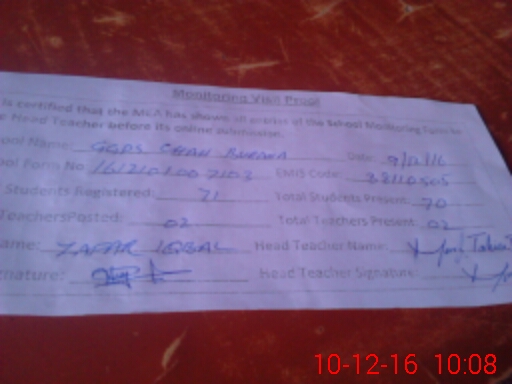 Monitoring Visit Proof
is certified that the MEA has shown all entries of the School Monitoring Form to
Head Teacher before its online submission.
ool Name: GGPS CHAH Date: 9/12/16
ool Form No 161210100 2103 EMIS Code: 38110505
Students Registered: 71 Total Students Present: 70
Teachers Posted: 02 Total Teachers Present: 02
ame: ZAFAR IQBAL Head Teacher Name:
nature: Head Teacher Signature:
10-12-16 10:08